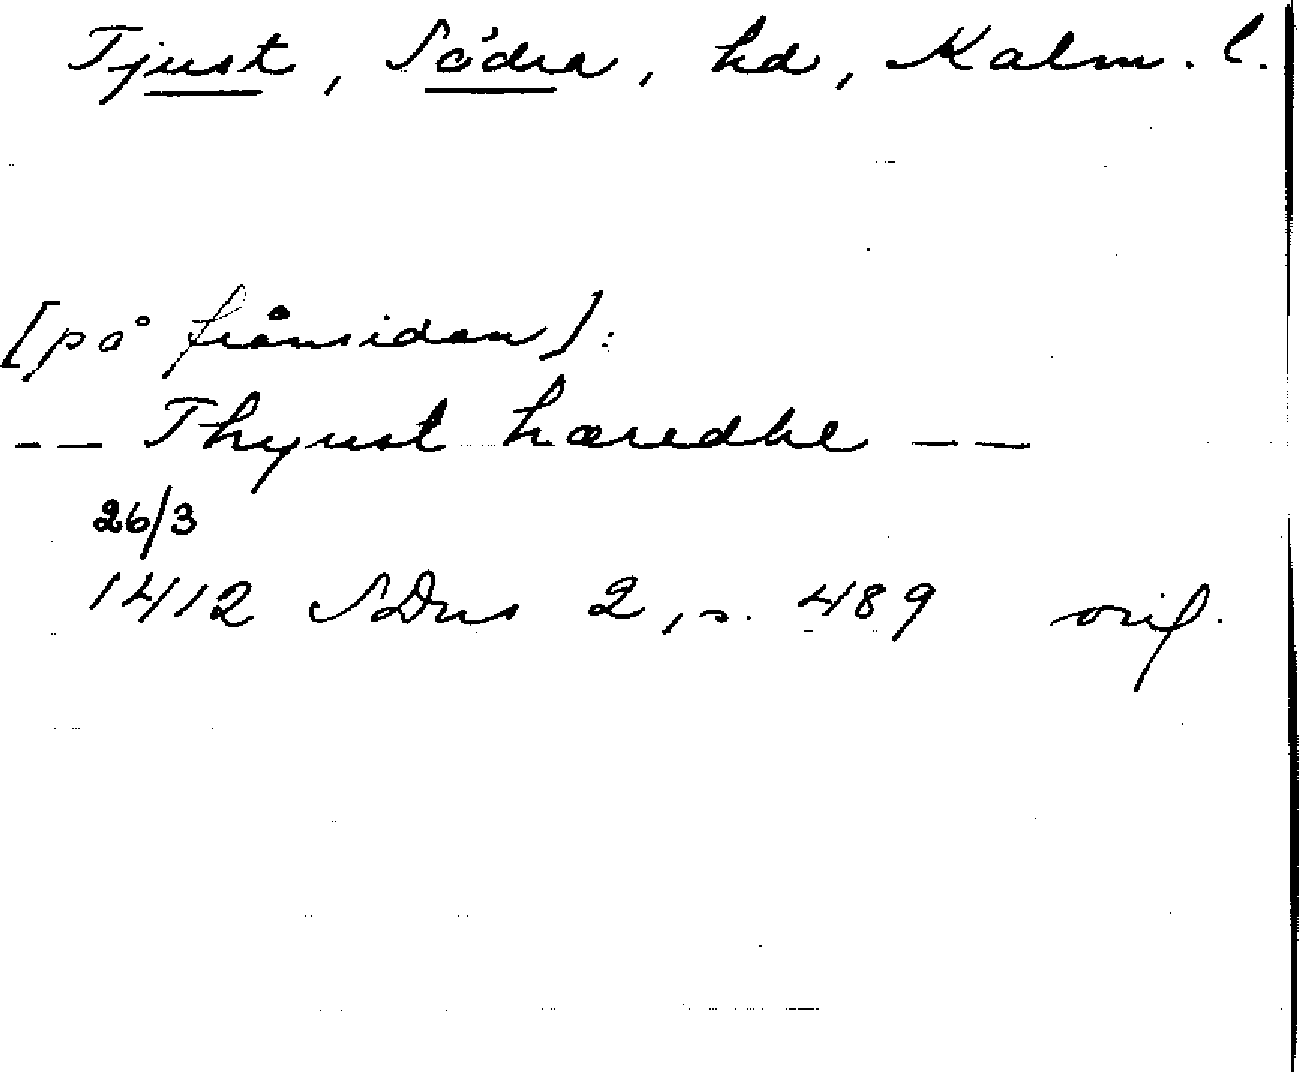 Tjust, Södra, hd, Kalm. l.
[på frånsidan]:
-- Thyust hæredhe --
26/3
1412 SDns 2, s. 489 orig.